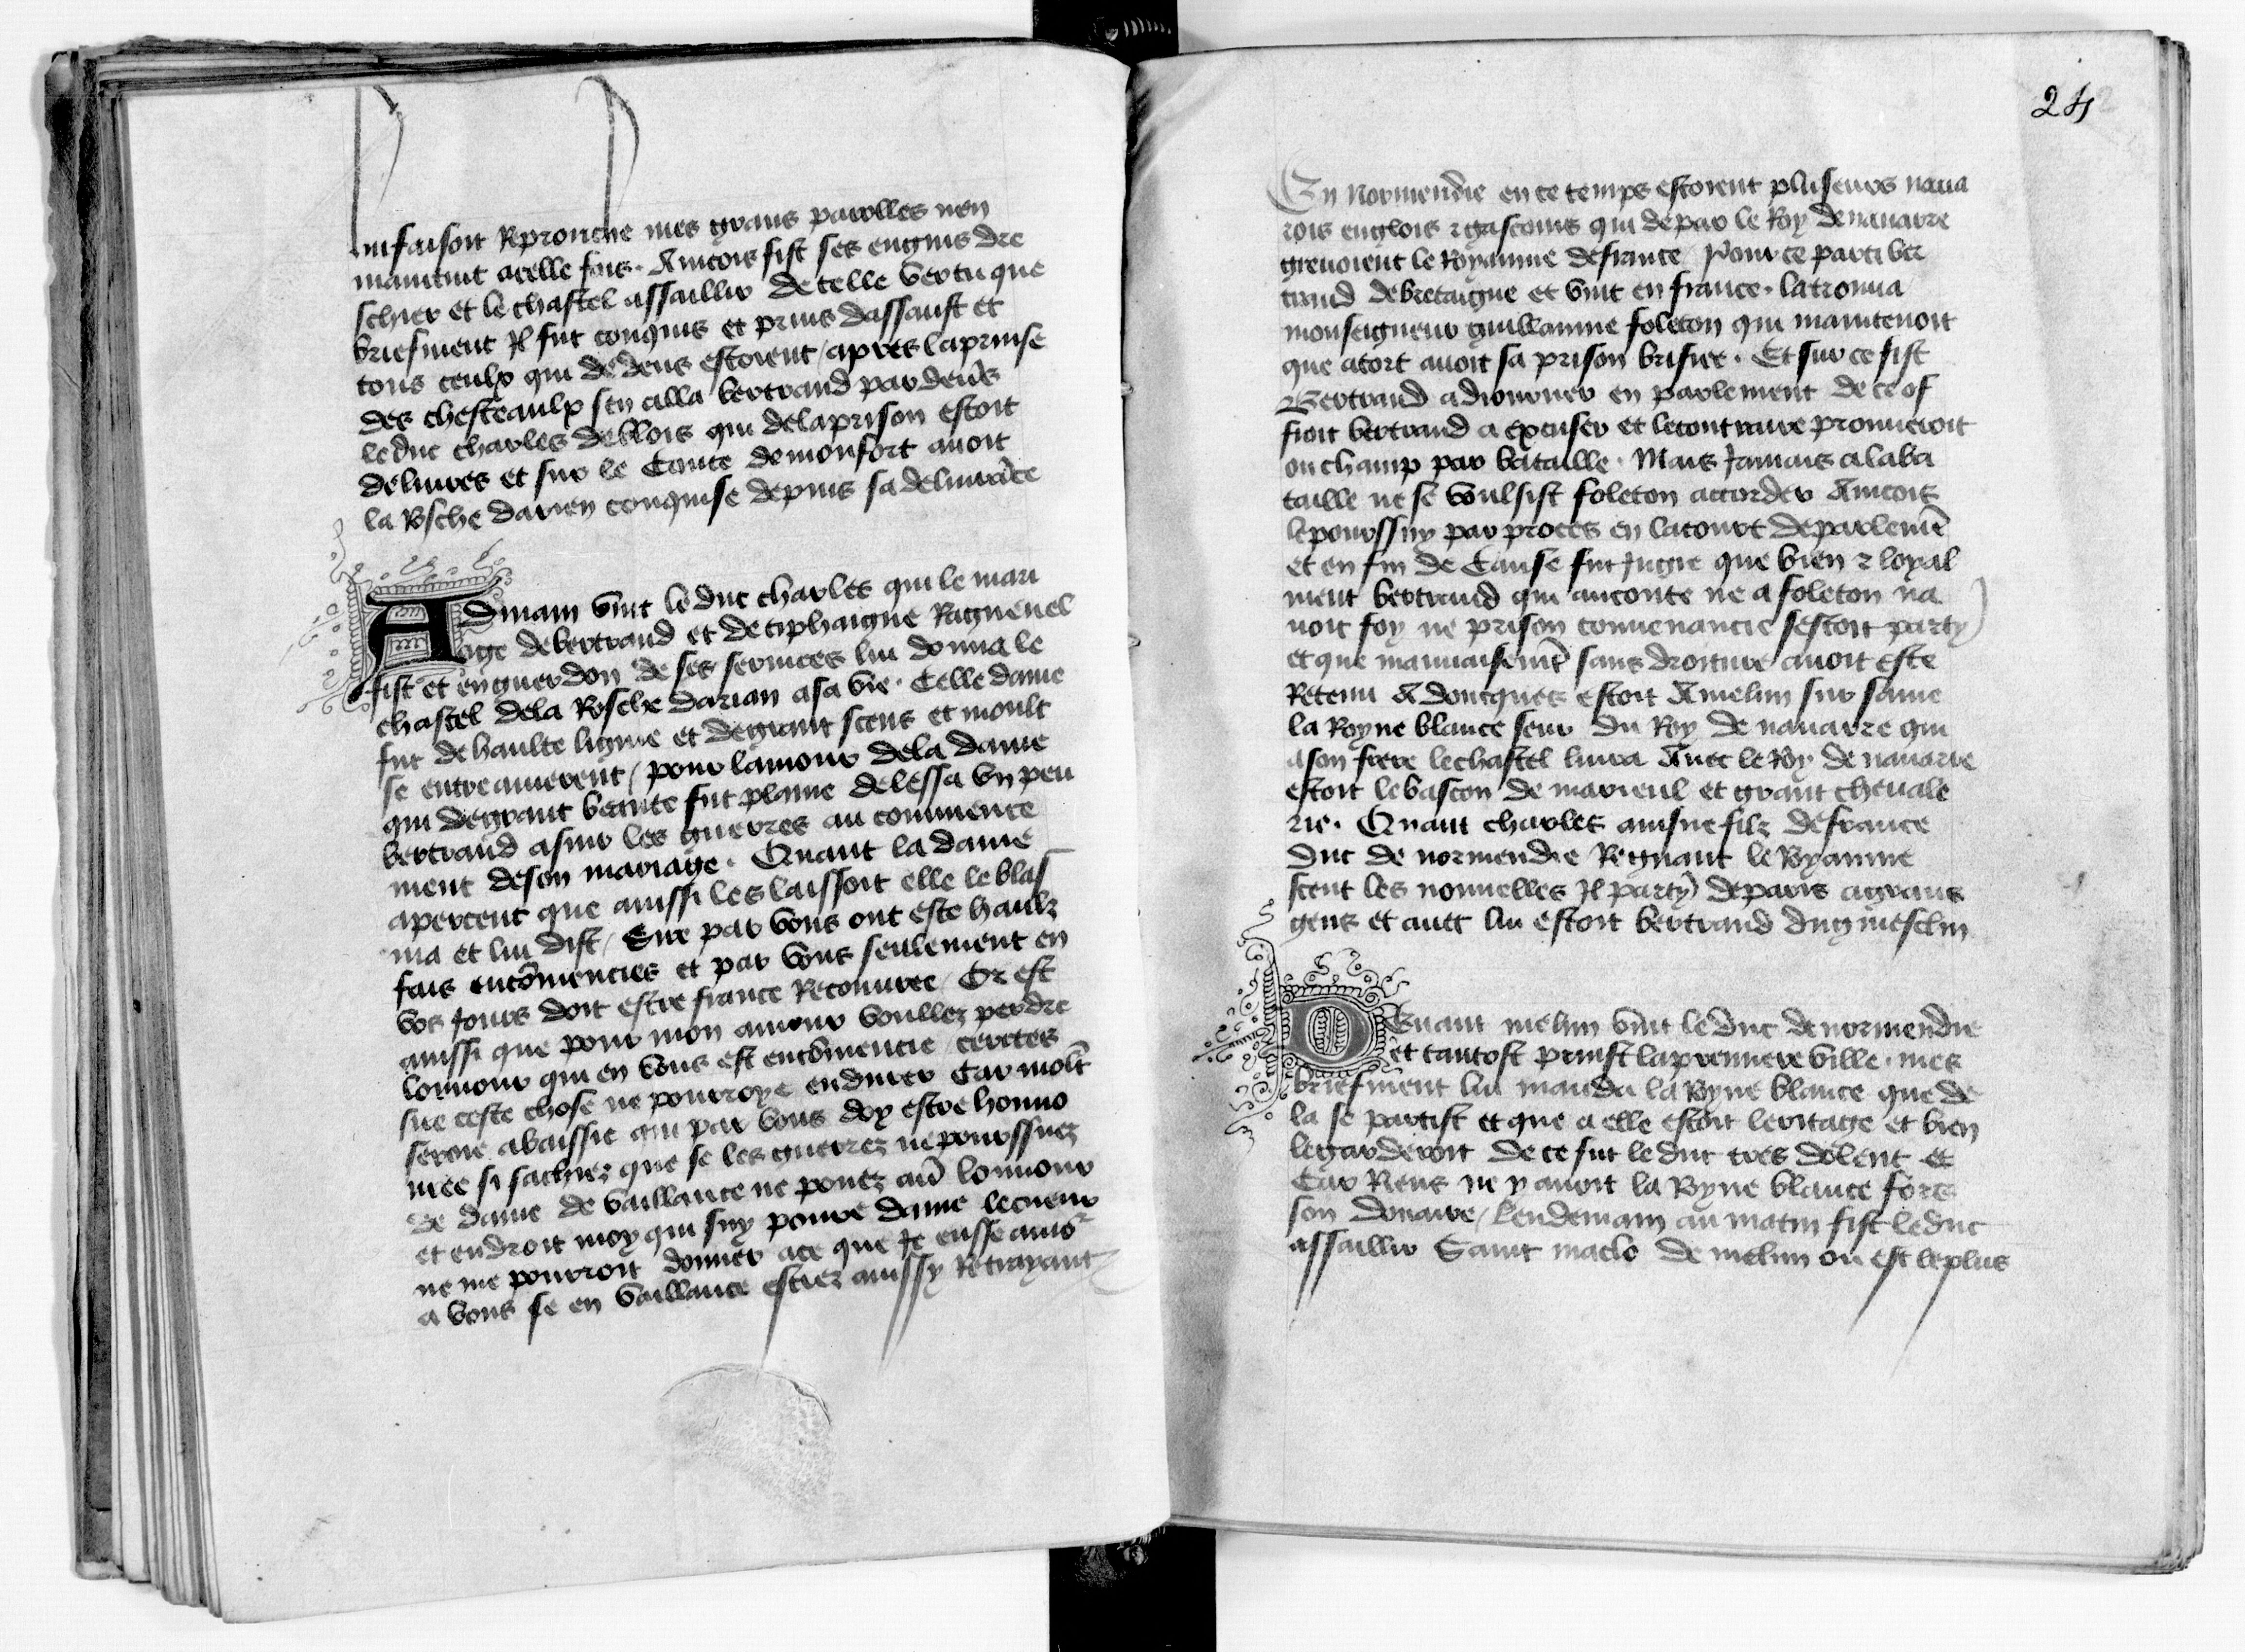 luifaisoit Reprouche mes grans parolles nen
maintint acelle fois. Aincois fist ses engins dre
schier et le chastel assaillir de telle vertu que
briefment Jl fut conquis et prins dassault et
tous ceulx qui dedens estoient / apres laprinse
des chasteaulx sen alla bertrand par deuers
leduc charles deblois qui delaprison estoit
deliures et sur le Conte demonfort auoit
la Rosche darien conquise depuis sa deliurãce
Adinam vint le duc charles qui le mari
age debertrand et detiphaigne Raguenel
fist et enguerdon de ses seruices lui donna le
chastel dela Rosche darian asa vie. Celle dame
fut de haulte lignie et degrant scens et moult
se entreamerent / pour lamour dela dame
qui degrant beaute fut plaine delessa vn peu
bertrand asiuir les guerres au commence
ment deson mariage. Quant la dame
aperceut que aussi les laissoit elle le blas
ma et lui dist / Sire par vous ont este haulz
fais encõmencies et par vous seulement en
vos Jours doit estre france Recouuree / Or est
aussi que pour mon amour voullez perdre
lonnour qui en vous est encõmencie / certes
sire ceste chose ne pourroye endurer Car molt
seroie abaissie qui par vous doy estre honno
ree si sachiez que se les guerrez nepourssuiez
de dame de vaillance ne pouez auõ lonnour
et endroit moy qui suy poure dame lecueur
ne me pourroit donner ace que Je eusse amor
a vous se en vaillance estiez aussy Retrayant
24
En Normendie en ce temps estoient pluseurs naua
rois englois et gascoins qui depar le Roy denauarre
greuoient le Royaume defrance / Pour ce parti ber
trand debretaigne et vint en france. latrouua
monseigneur guillaume foleton qui maintenoit
que atort auoit sa prison brisiee. Et sur ce fist
Bertrand adiourner en parlement de ce of
froit bertrand a excuser et lecontraire prouueroit
ou champ par bataille. Mais Jamais alaba
taille ne se voulsist foleton accorder Aincois
lepourssuy par proces en lacourt deparlemẽt
et en fin de Cause fut Jugie que bien et loyal
ment bertrand qui auconte ne a foleton na
uoit foy ne prison conuenancie sestoit party
et que mauuaisemẽt sans droiture auoit este
Retenu Adoncques estoit Amelun sur saine
la Royne blance seur du Roy de nauarre qui
ason frere lechastel liura Auec le Roy de nauarre
estoit lebascon de mareul et grant cheuale
rie. Quant charles aisne filz defrance
duc de normendie Regnant le Royaume
sceut les nouuelles Jl party deparis agrans
gens et auec lui estoit bertrand duguesclin
Deuant melun vint leduc denormendie
et tantost prinst lapremiere ville. mes
briefment lui manda la Royne blance que de
la se partist et que a elle estoit leritage et bien
legarderoit de ce fut leduc tres dolent et
Car Riens ne y auoit la Royne blance fors
son douaire / Lendemain au matin fist leduc
assaillir Saint maclo de melun ou est leplus